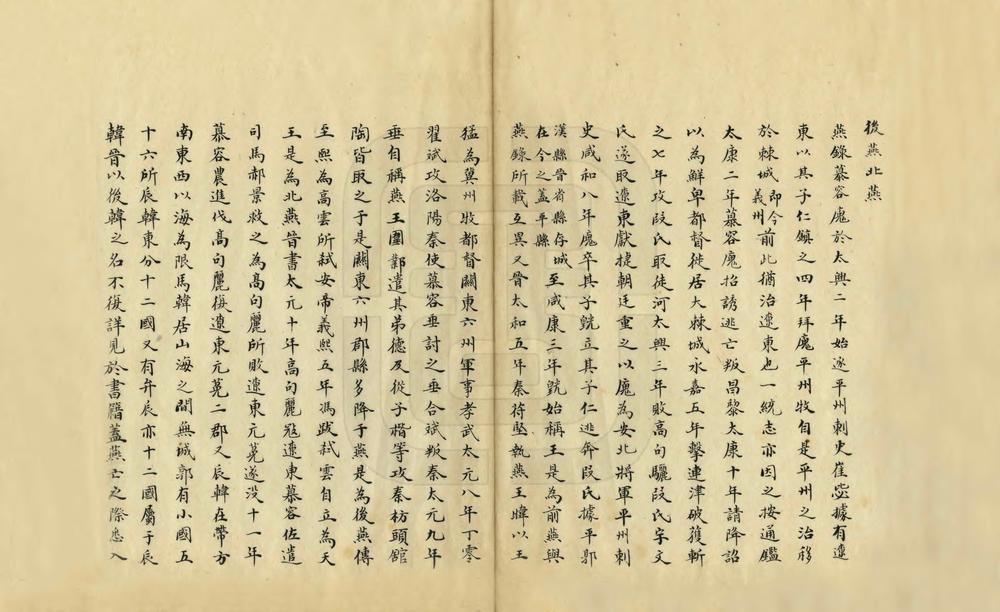 後燕北燕
燕錄慕容廆於太興二年始逐平州刺史崔毖據有遼
東以其子仁鎮之四年拜廆平州牧自是平州之治移
於棘城即今義州前此猶治遼東也一統志亦因之按通鑑
太康二年慕容廆招誘逃亡叛昌黎太康十年請降詔
以為鮮卑都督徙居大棘城永嘉五年擊連津破獲斬
之七年攻段氏取徒河太興三年敗高句驪段氏宇文
氏遂取遼東獻捷朝廷重之以廆為安北將軍平州刺
史咸和八年廆卒其子皝立其子仁逃奔段氏據平郭
漢縣晉省縣存城在今之蓋平縣至咸康三年皝始稱王是為前燕與
燕錄所載互異又晉太和五年秦苻堅執燕王暐以王
猛為冀州牧都督關東六州軍事孝武太元八年丁零
翟斌攻洛陽秦使慕容垂討之垂合斌叛秦太元九年
垂自稱燕王圍鄴遣其弟德及從子楷等攻秦枋頭館
陶皆取之于是關東六州郡縣多降于燕是為後燕傳
至熙為高雲所弒安帝義熙五年馮跋弒雲自立為天
王是為北燕晉書太元十年高句麗寇遼東慕容佐遣
司馬郝景救之為高句麗所敗遼東元菟遂没十一年
慕容農進伐高句麗復遼東元菟二郡又辰韓在帶方
南東西以海為限馬韓居山海之間無城郭有小國五
十六所辰韓東分十二國又有弁辰亦十二國屬于辰
韓晉以後韓之名不復詳見於書籍蓋燕亡之際悉入